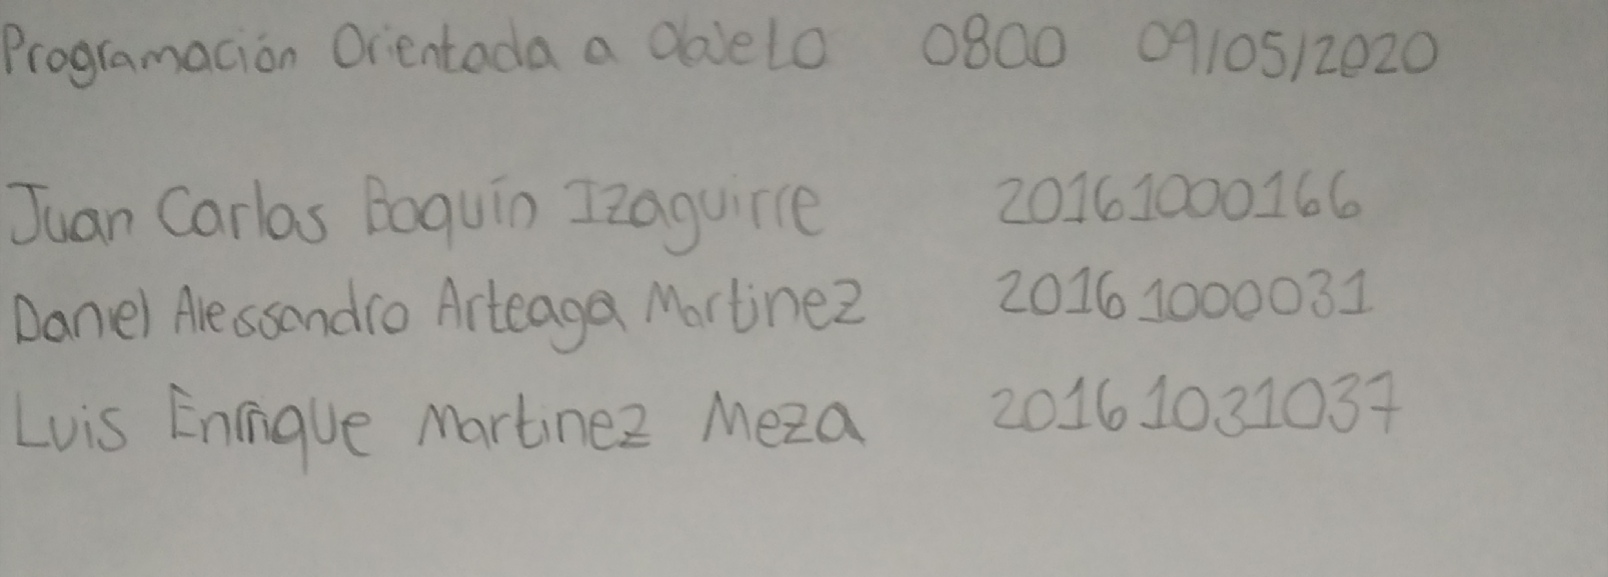 Programación Orientada a Objeto 0800 09/05/2020
Juan Carlos Boquín Izaguirre 20161000166
Daniel Alessandro Arteaga Martinez 20161000031
Luis Enrique Martinez Meza 20161031037